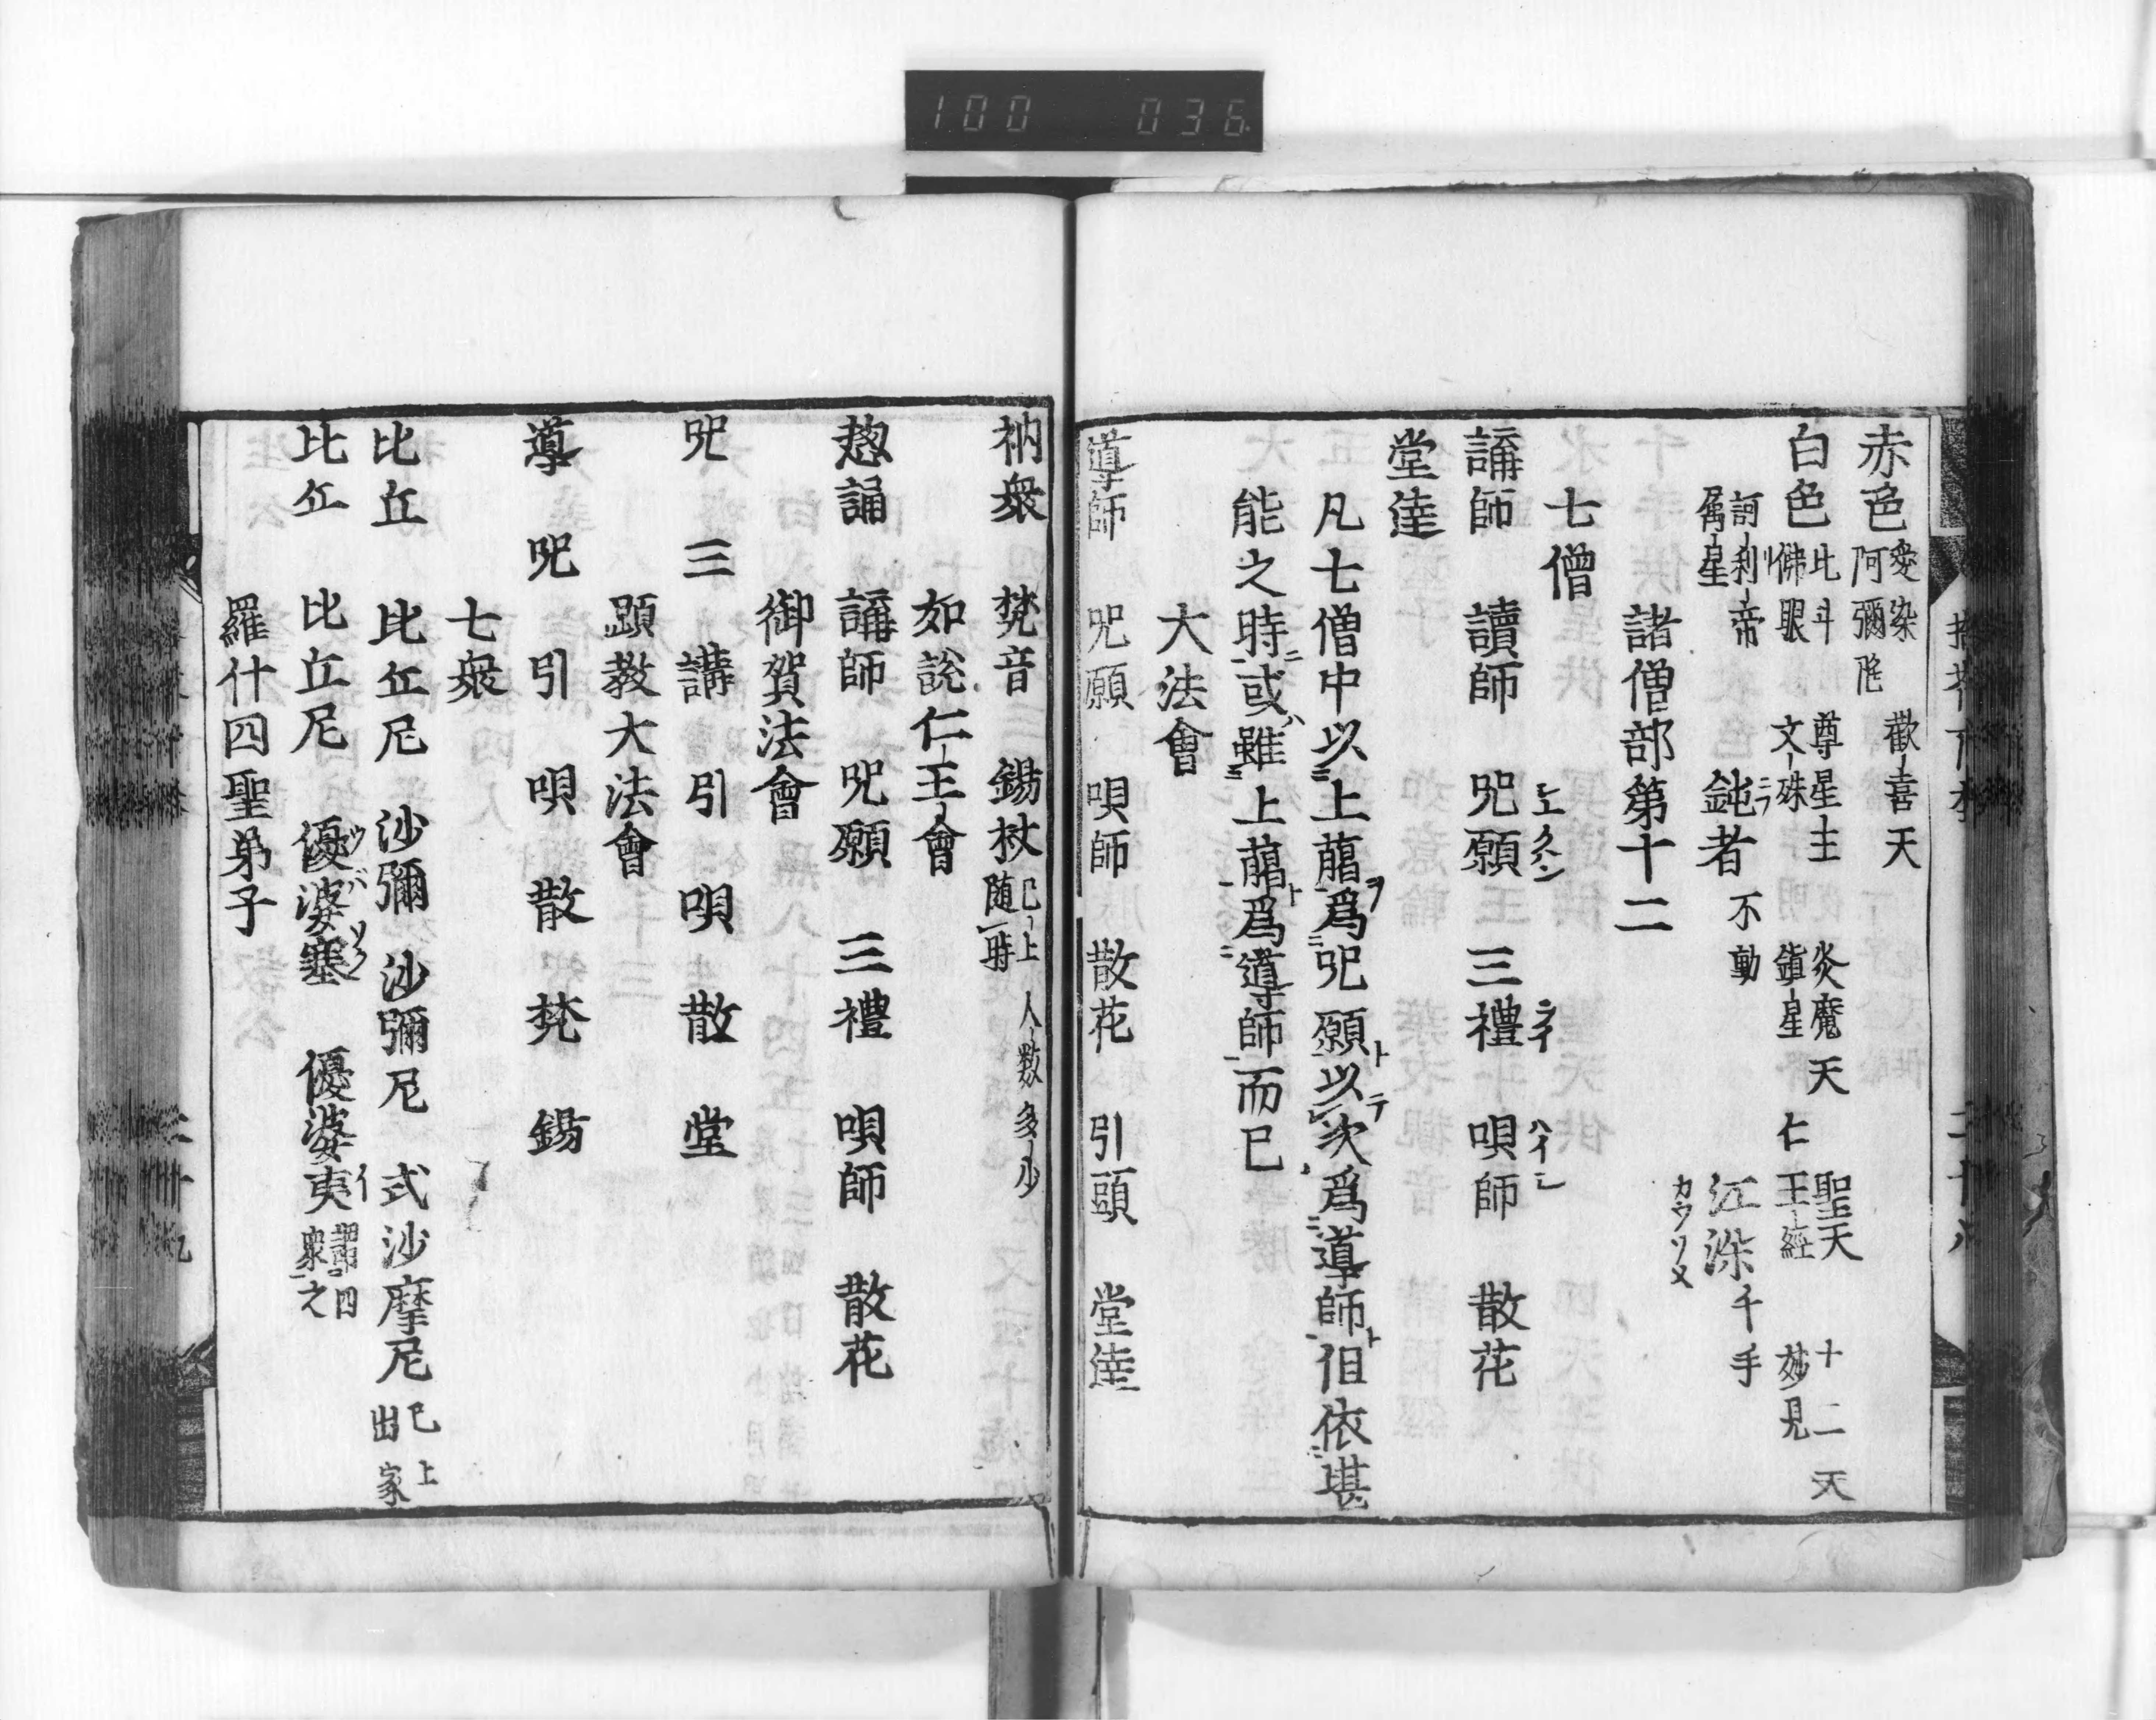 100 036
赤色 愛染 歡喜天
阿彌陀
白色 北斗 尊星主 炎魔天 聖天 十二天
佛眼 文殊 鎮星 仁王經 妙見
訶利帝 鈍者 不動 江染 千手
属星 カウソメ
諸僧部第十二
七僧
講師 讀師 呪願 三禮 唄師 散花
堂達
凡七僧中以上﨟爲呪願以次爲導師但依堪
能之時或雖上﨟爲導師而已
大法會
導師 呪願 唄師 散花 引頭 堂達
衲衆 梵音 錫杖 已上 人數多少
随時
如說仁王會
惣誦 講師 呪願 三禮 唄師 散花
御賀法會
呪 三 講 引 唄 散 堂
顕教大法會
導 呪 引 唄 散 梵 錫
七衆
比丘 比丘尼 沙彌 沙彌尼 式沙摩尼 已上
出家
比丘 比丘尼 優婆塞 優婆夷 謂四
衆之
羅什四聖弟子